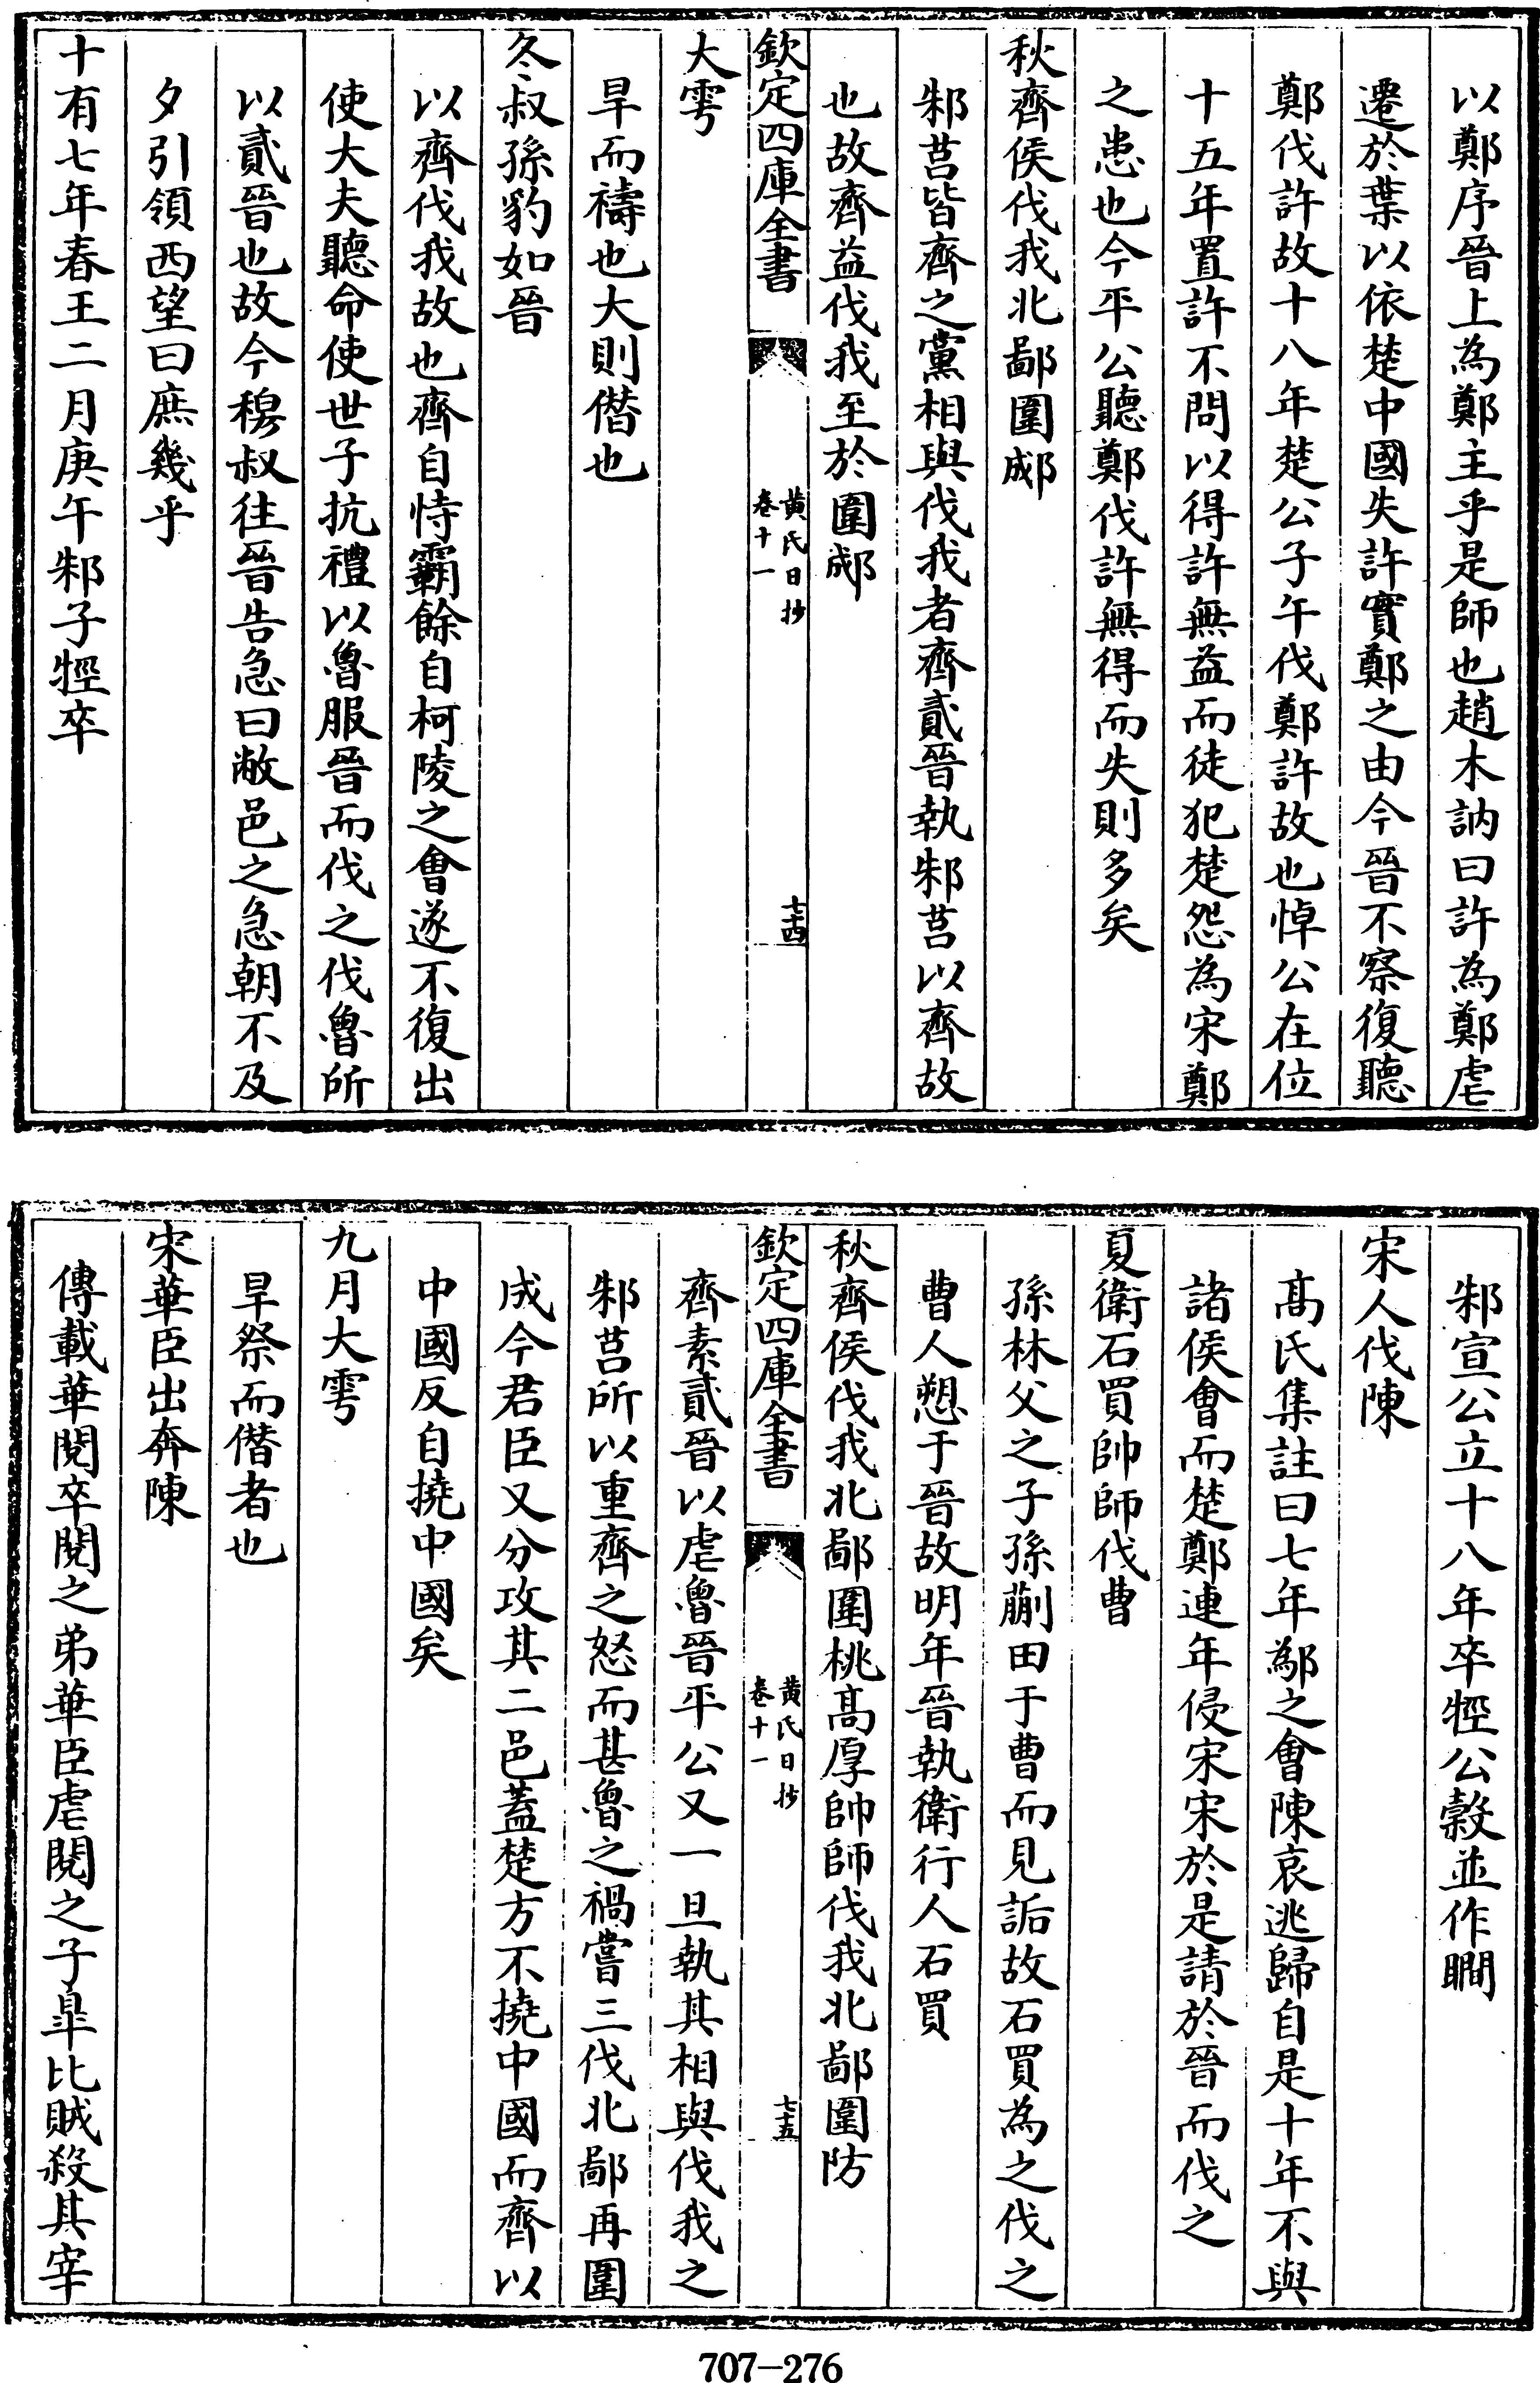 以鄭序晉上為鄭主乎是師也趙木訥曰許為鄭虐
遷於葉以依楚中國失許實鄭之由今晉不察復聽
鄭伐許故十八年楚公子午伐鄭許故也悼公在位
十五年置許不問以得許無益而徒犯楚怨為宋鄭
之患也今平公聽鄭伐許無得而失則多矣
秋齊侯伐我北鄙圍郕
邾莒皆齊之黨相與伐我者齊貳晉執邾莒以齊故
也故齊益伐我至於圍郕
欽定四庫全書
黄氏日抄
卷十一
七十四
大雩
旱而禱也大則僭也
冬叔孫豹如晉
以齊伐我故也齊自恃霸餘自柯陵之會遂不復出
使大夫聽命使世子抗禮以魯服晉而伐之伐魯所
以貳晉也故今穆叔往晉告急曰敝邑之急朝不及
夕引領西望曰庶幾乎
十有七年春王二月庚午邾子牼卒
邾宣公立十八年卒牼公穀並作瞷
宋人伐陳
髙氏集註曰七年鄬之會陳哀逃歸自是十年不與
諸侯會而楚鄭連年侵宋宋於是請於晉而伐之
夏衛石買帥師伐曹
孫林父之子孫蒯田于曹而見詬故石買為之伐之
曹人愬于晉故明年晉執衛行人石買
秋齊侯伐我北鄙圍桃髙厚帥師伐我北鄙圍防
欽定四庫全書
黄氏日抄
卷十一
七十五
齊素貳晉以虐魯晉平公又一旦執其相與伐我之
邾莒所以重齊之怒而甚魯之禍嘗三伐北鄙再圍
成今君臣又分攻其二邑蓋楚方不撓中國而齊以
中國反自撓中國矣
九月大雩
旱祭而僭者也
宋華臣出奔陳
傳載華閱卒閱之弟華臣虐閱之子臯比賊殺其宰
707-276